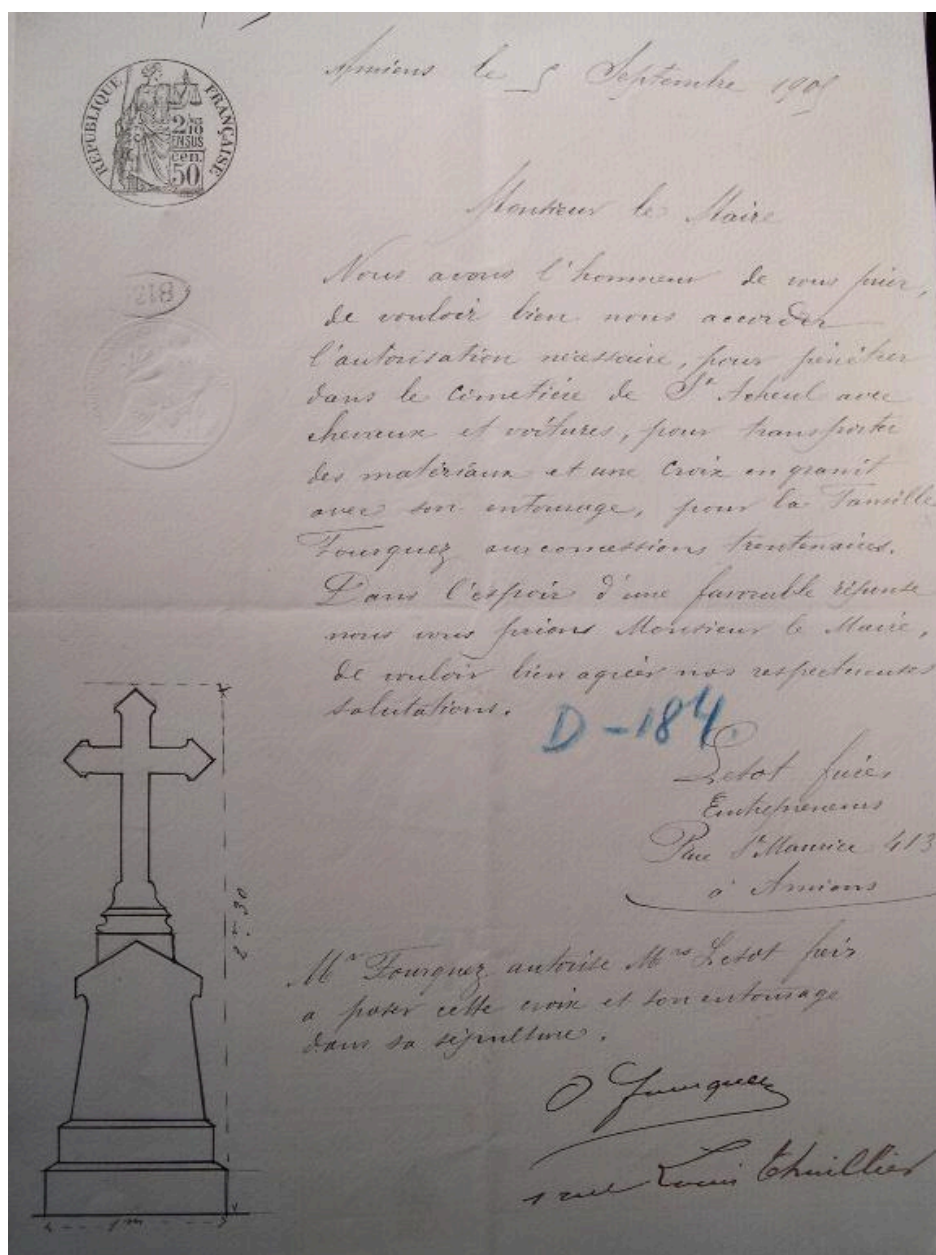 RÉPUBLIQUE FRANÇAISE
2/10
EN SUS
cen.
50
Amiens le 5 Septembre 190
Monsieur le Maire
Nous avons l'honneur de vous prier,
de vouloir bien nous accorder
l'autorisation nécessaire, pour pénétrer
dans le Cimetière de St Acheul avec
chevaux et voitures, pour transporter
des matériaux et une Croix en granit
avec son entourage, pour la Famille
Fourquez aux concessions trentenaires.
Dans l'espoir d'une favorable réponse
nous vous prions Monsieur le Maire,
de vouloir bien agréer nos respectueuses
salutations.
D-184
Letot frères
Entrepreneurs
Rue St Maurice 413
à Amiens
2m.30
1m
Mr Fourquez autorise Mrs Letot frères
a poser cette croix et son entourage
dans sa sépulture.
O Fourquez
1 rue Louis Thuillier